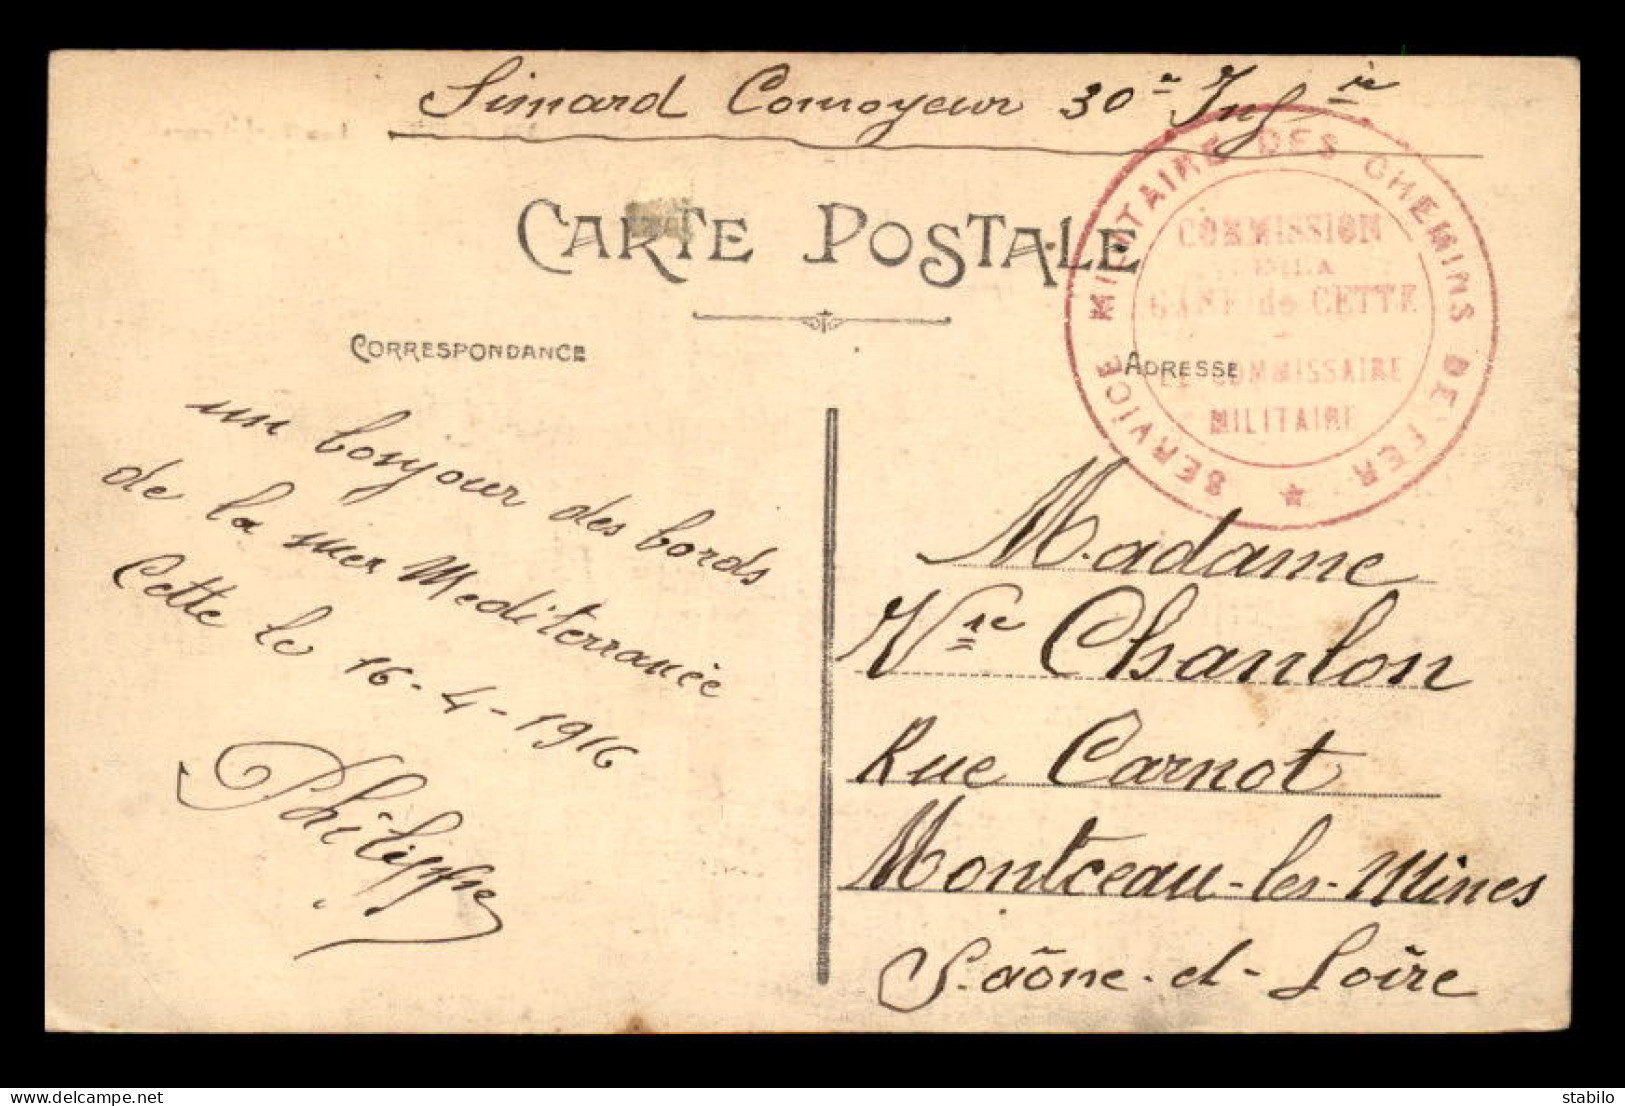 Simard Convoyeur 30e Infrie
CARTE POSTALE
SERVICE MILITAIRE DES CHEMINS DE FER
COMMISSION
DE LA
GARE de CETTE
LE COMMISSAIRE
MILITAIRE
CORRESPONDANCE
ADRESSE
un bonjour des bords
de la mer Mediterranée
Cette le 16-4-1916
Philippe
Madame
Vve Chanlon
Rue Carnot
Montceau-les-Mines
Saône-et-Loire
stabilo